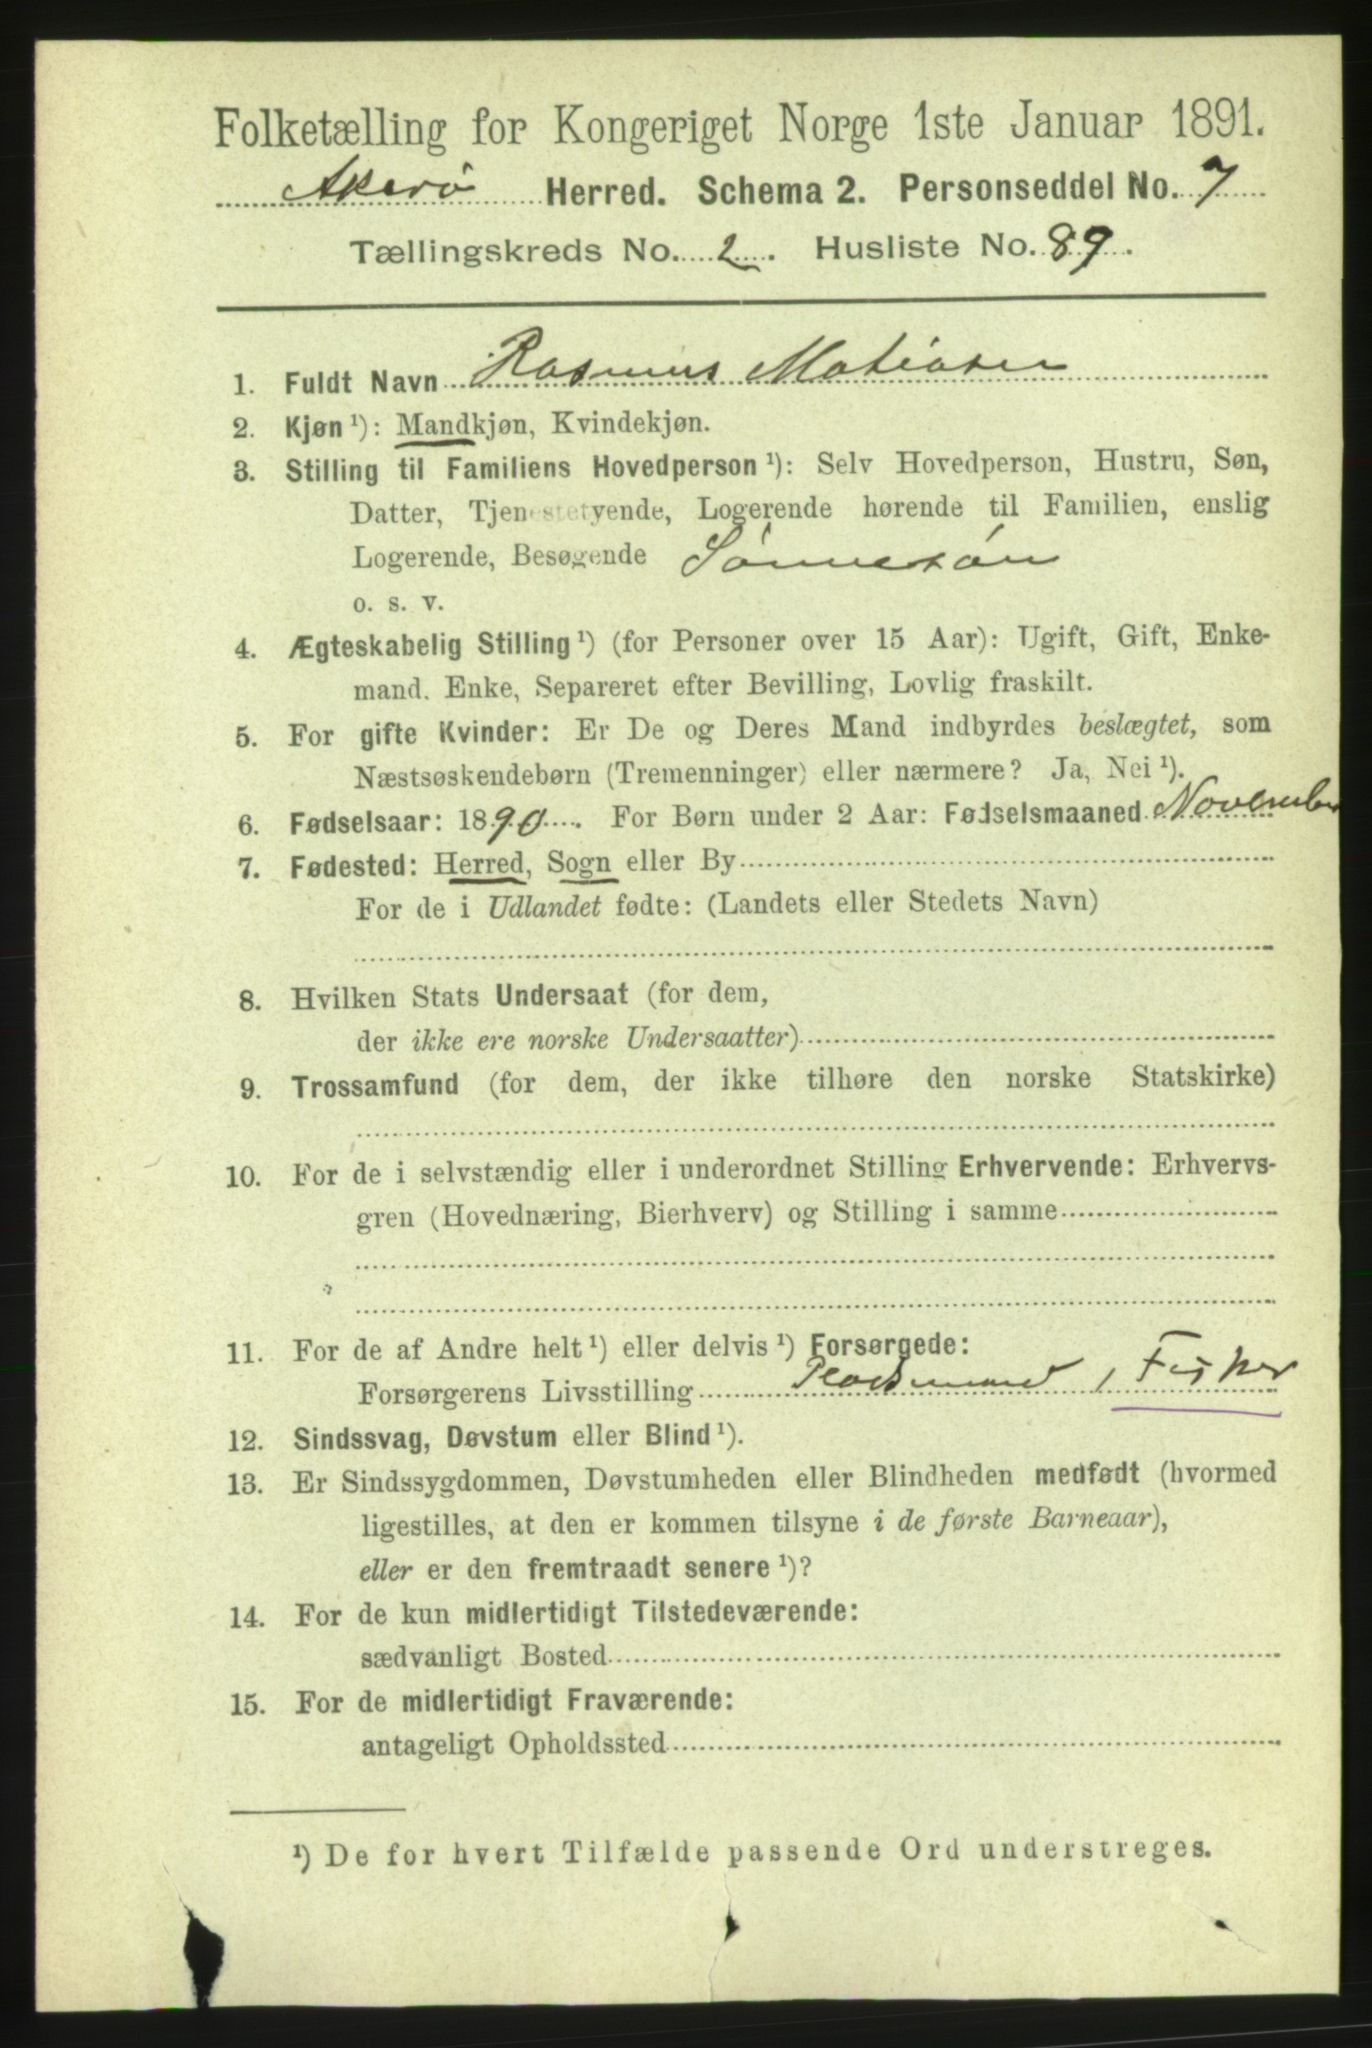 Folketælling for Kongeriget Norge 1ste Januar 1891.
Akerø Herred. Schema 2. Personseddel No. 7
Tællingskreds No. 2. Husliste No. 89.
1. Fuldt Navn Rasmus Matiasen
2. Kjøn ¹): Mandkjøn, Kvindekjøn.
3. Stilling til Familiens Hovedperson ¹): Selv Hovedperson, Hustru, Søn,
Datter, Tjenestetyende, Logerende hørende til Familien, enslig
Logerende, Besøgende Sønnesøn
o. s. v.
4. Ægteskabelig Stilling ¹) (for Personer over 15 Aar): Ugift, Gift, Enke-
mand. Enke, Separeret efter Bevilling, Lovlig fraskilt.
5. For gifte Kvinder: Er De og Deres Mand indbyrdes beslægtet, som
Næstsøskendebørn (Tremenninger) eller nærmere? Ja, Nei ¹).
6. Fødselsaar: 1890. For Børn under 2 Aar: Fødselsmaaned November
7. Fødested: Herred, Sogn eller By
For de i Udlandet fødte: (Landets eller Stedets Navn)
8. Hvilken Stats Undersaat (for dem,
der ikke ere norske Undersaatter)
9. Trossamfund (for dem, der ikke tilhøre den norske Statskirke)
10. For de i selvstændig eller i underordnet Stilling Erhvervende: Erhvervs-
gren (Hovednæring, Bierhverv) og Stilling i samme
11. For de af Andre helt ¹) eller delvis ¹) Forsørgede:
Forsørgerens Livsstilling Pladsmand, Fisker
12. Sindssvag, Døvstum eller Blind ¹).
13. Er Sindssygdommen, Døvstumheden eller Blindheden medfødt (hvormed
ligestilles, at den er kommen tilsyne i de første Barneaar),
eller er den fremtraadt senere ¹)?
14. For de kun midlertidigt Tilstedeværende:
sædvanligt Bosted
15. For de midlertidigt Fraværende:
antageligt Opholdssted
¹) De for hvert Tilfælde passende Ord understreges.